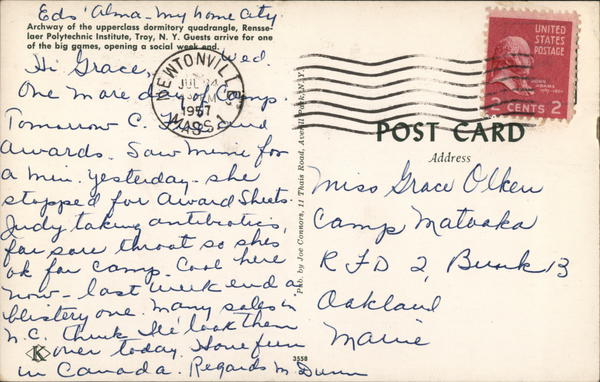 Eds' Alma - my home city
Archway of the upperclass dormitory quadrangle, Rensse-
laer Polytechnic Institute, Troy, N. Y. Guests arrive for one
of the big games, opening a social week end.
Wed.
Hi Grace,
One more day of Camp
Tomorrow C. and
Awards. Saw Mimi for
a min. yesterday - she
stopped for Award Sheets.
Judy taking antibiotics,
for sore throat so she's
ok for camp. Cool here
now - last week end a
blistery one. Many sales in
N.C. think I'll look them
over today. Have fun
in Canada. Regards M. Dunn
K
3558
Pub. by Joe Connors, 11 Thais Road, Averill Park, N.Y.
NEWTONVILLE
JUL
PM
1957
MASS.
UNITED
STATES
POSTAGE
JOHN
ADAMS
2 CENTS 2
POST CARD
Address
Miss Grace Olken
Camp Matoaka
RFD 2, Bunk 13
Oakland
Maine